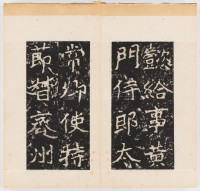 懿給事黃
門侍郎太
常卿使持
節督齊州